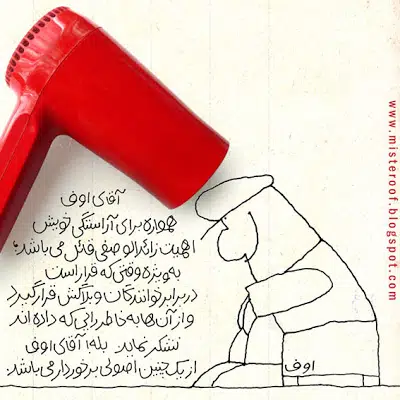 آقای اوف
همواره برای آراستگی خویش
اهمیت زائدالوصفی قائل می‌باشد؛
به‌ویژه وقتی که قرار است
در برابر خوانندگان وبلاگش قرار گیرد
و از آن‌ها به خاطر رایی که داده اند
تشکر نماید. بله! آقای اوف
از یک چنین اصولی برخوردار می‌باشد.
اوف
www.misteroof.blogspot.com